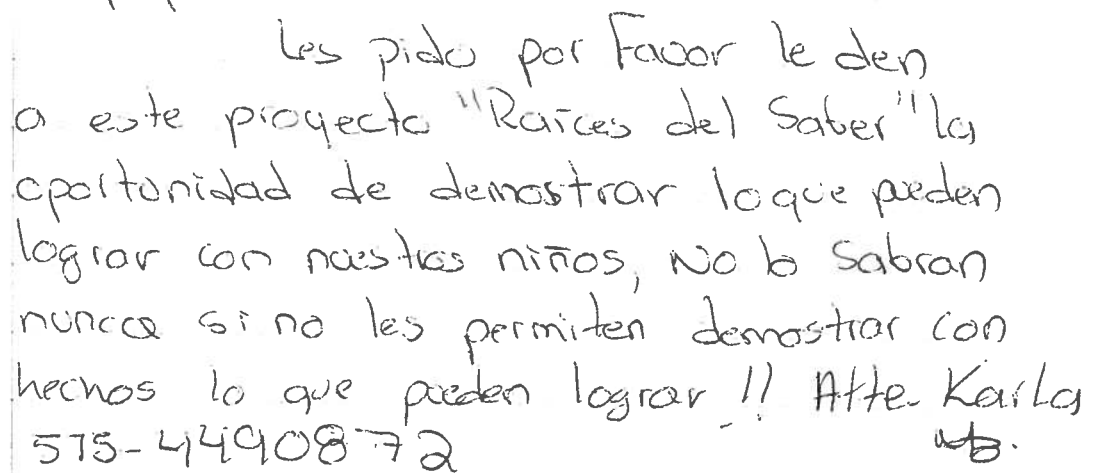 Les pido por Favor le den
a este proyecto "Raices del Saber" la
oportunidad de demostrar loque pueden
lograr con nuestros niños, No lo Sabran
nunca si no les permiten demostrar con
hechos lo que pueden lograr!! Atte. Karla
575-4490872